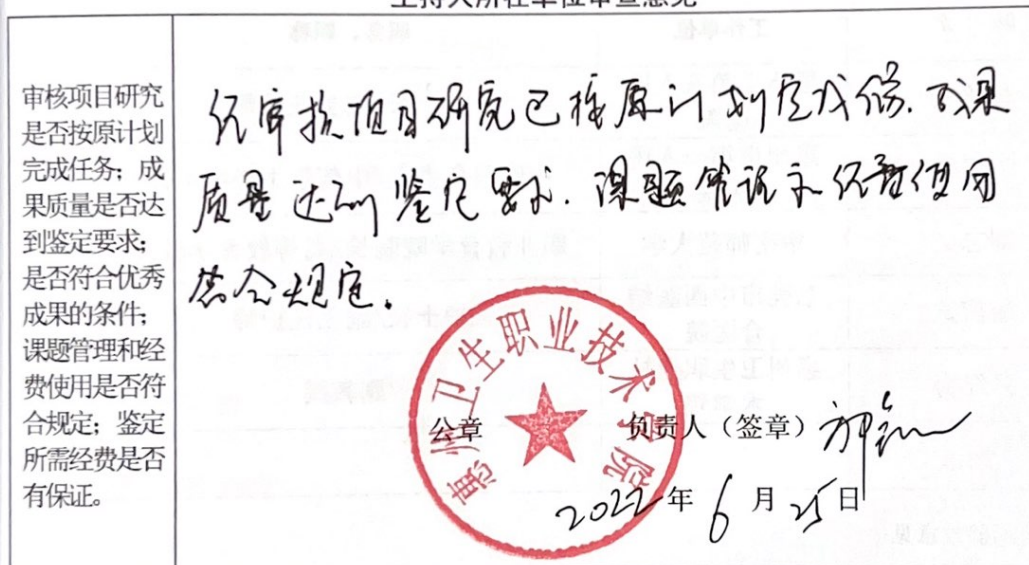 主持人所在单位审查意见
审核项目研究
是否按原计划
完成任务；成
果质量是否达
到鉴定要求；
是否符合优秀
成果的条件；
课题管理和经
费使用是否符
合规定；鉴定
所需经费是否
有保证。
经审核项目研究已按原计划完成任务．成果
质量达到鉴定要求．课题管理和经费使用
符合规定。
惠州卫生职业技术学院
公章
负责人（签章）
2022年6月25日